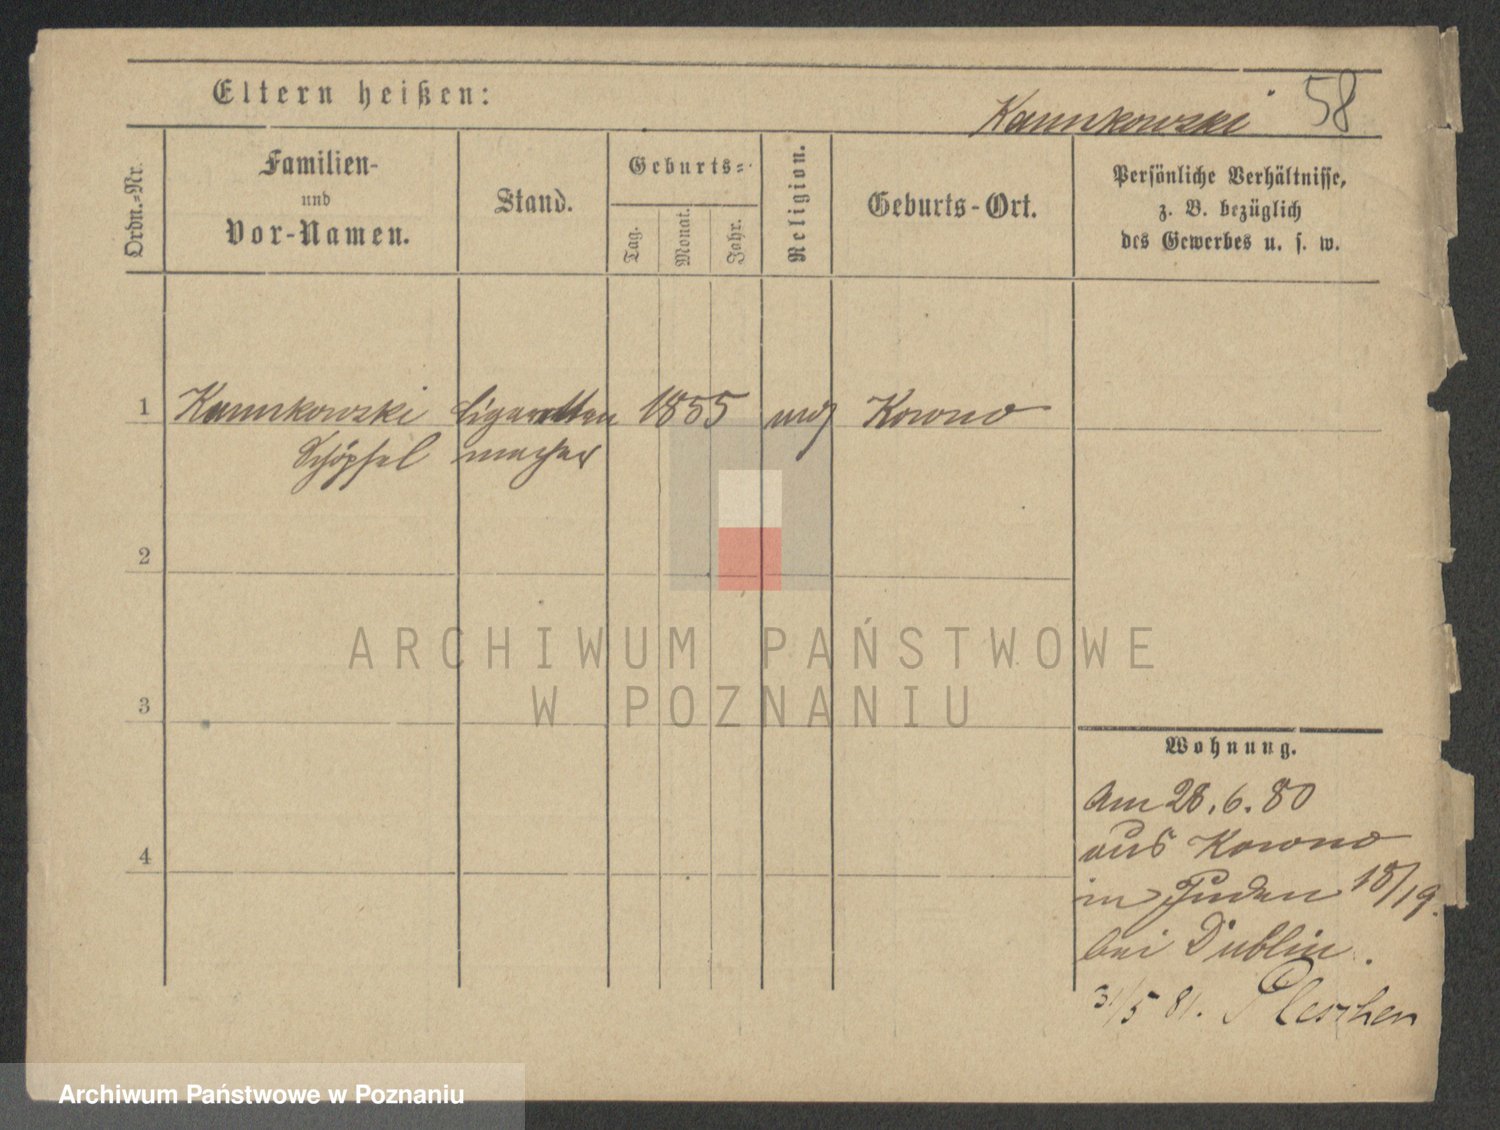 Eltern heißen:
58
Ordn.-Nr.
Familien-
und
Vor-Namen.
Stand.
Geburts-
Tag.
Monat.
Jahr.
Religion.
Geburts-Ort.
Persönliche Verhältnisse,
z. B. bezüglich
des Gewerbes u. s. w.
1
Cigaretten 1855 Kowno
macher
2
3
4
ARCHIWUM PAŃSTWOWE
W POZNANIU
Wohnung.
Am 28.6.80
aus Kowno
in Juden 18/19.
bei Dublin.
31/5 81. Pleschen
Archiwum Państwowe w Poznaniu